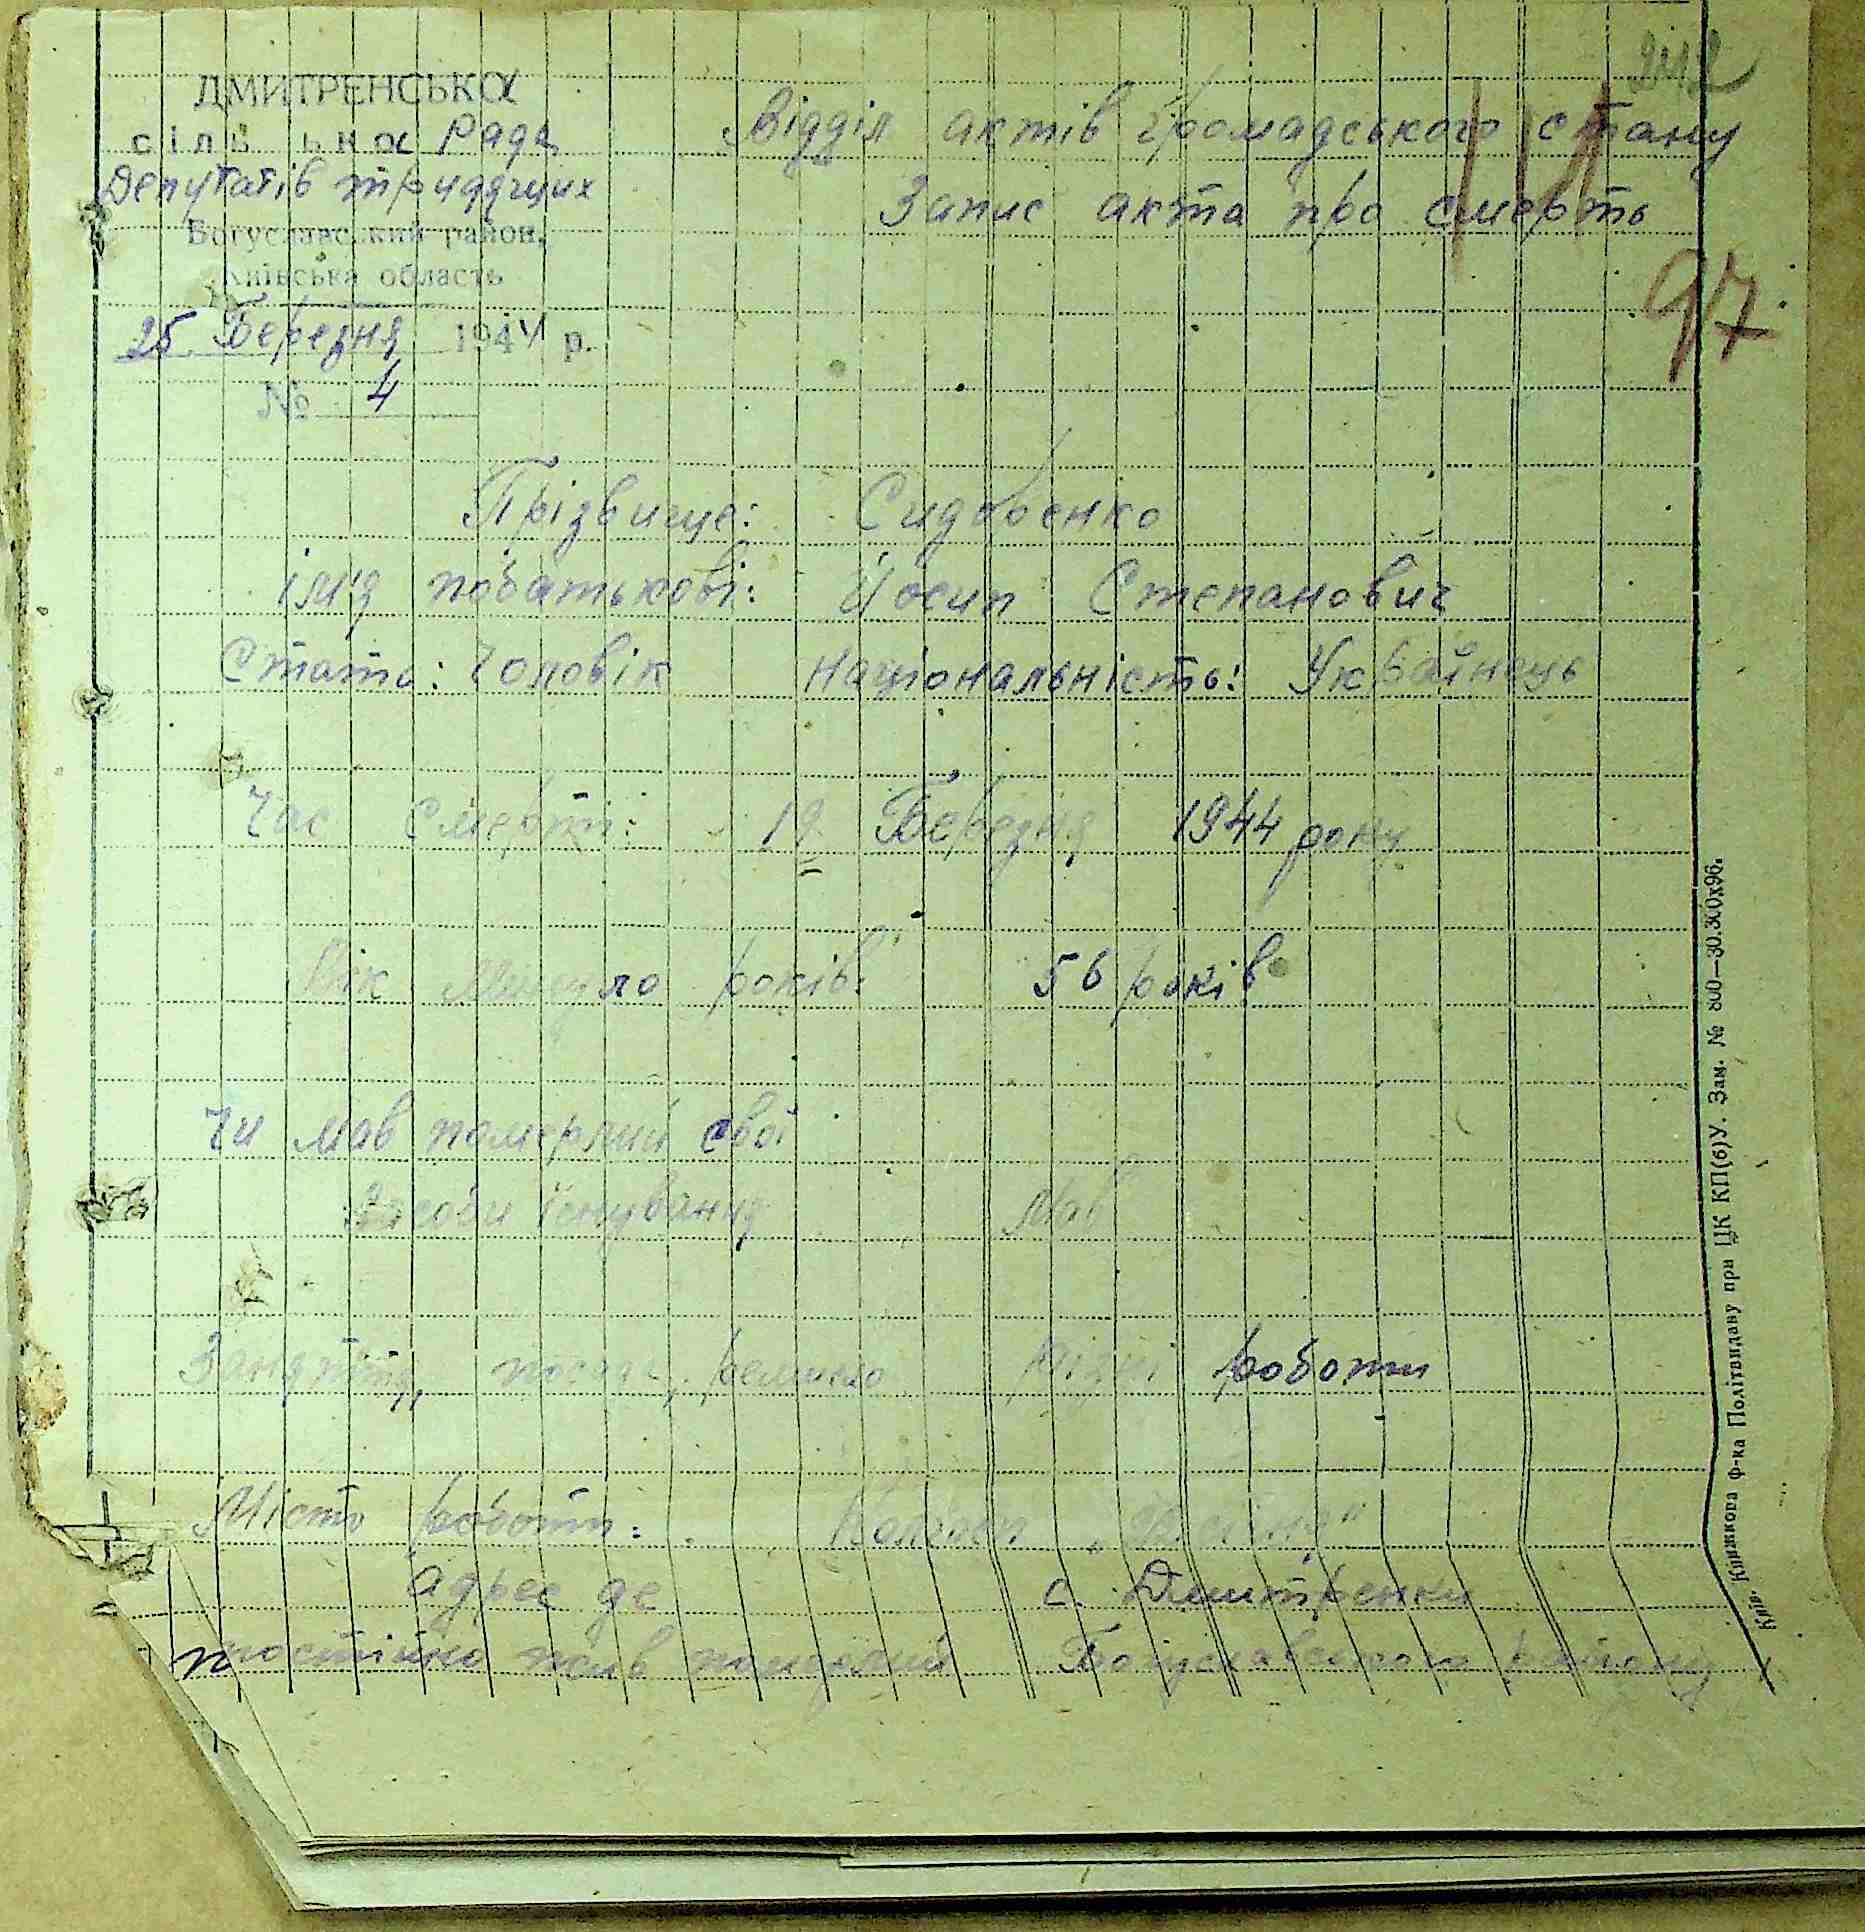 242
ДМИТРЕНСЬКА
сіль ька Рада
Депутатів трудящих
Богуславський район,
Київська область
25 Березня 1944 р.
№ 4
Відділ актів громадського стану
Запис акта про смерть
97
Прізвище: Сидоренко
імя побатькові: Йосип Степанович
Стать: Чоловік Національність: Українець
Час смерти: 19 Березня 1944 року
Вік Минуло років: 56 років
Чи мав померлий свої
засоби існування Мав
Заняття, посада, ремесло Різні роботи
Місто роботи: Колгосп
Адрес де с. Дмитренки
постійно жив померлий Богуславського району
Київ. Книжкова ф-ка Політвидаву при ЦК КП(б)У. Зам. № 800—30.300х96.